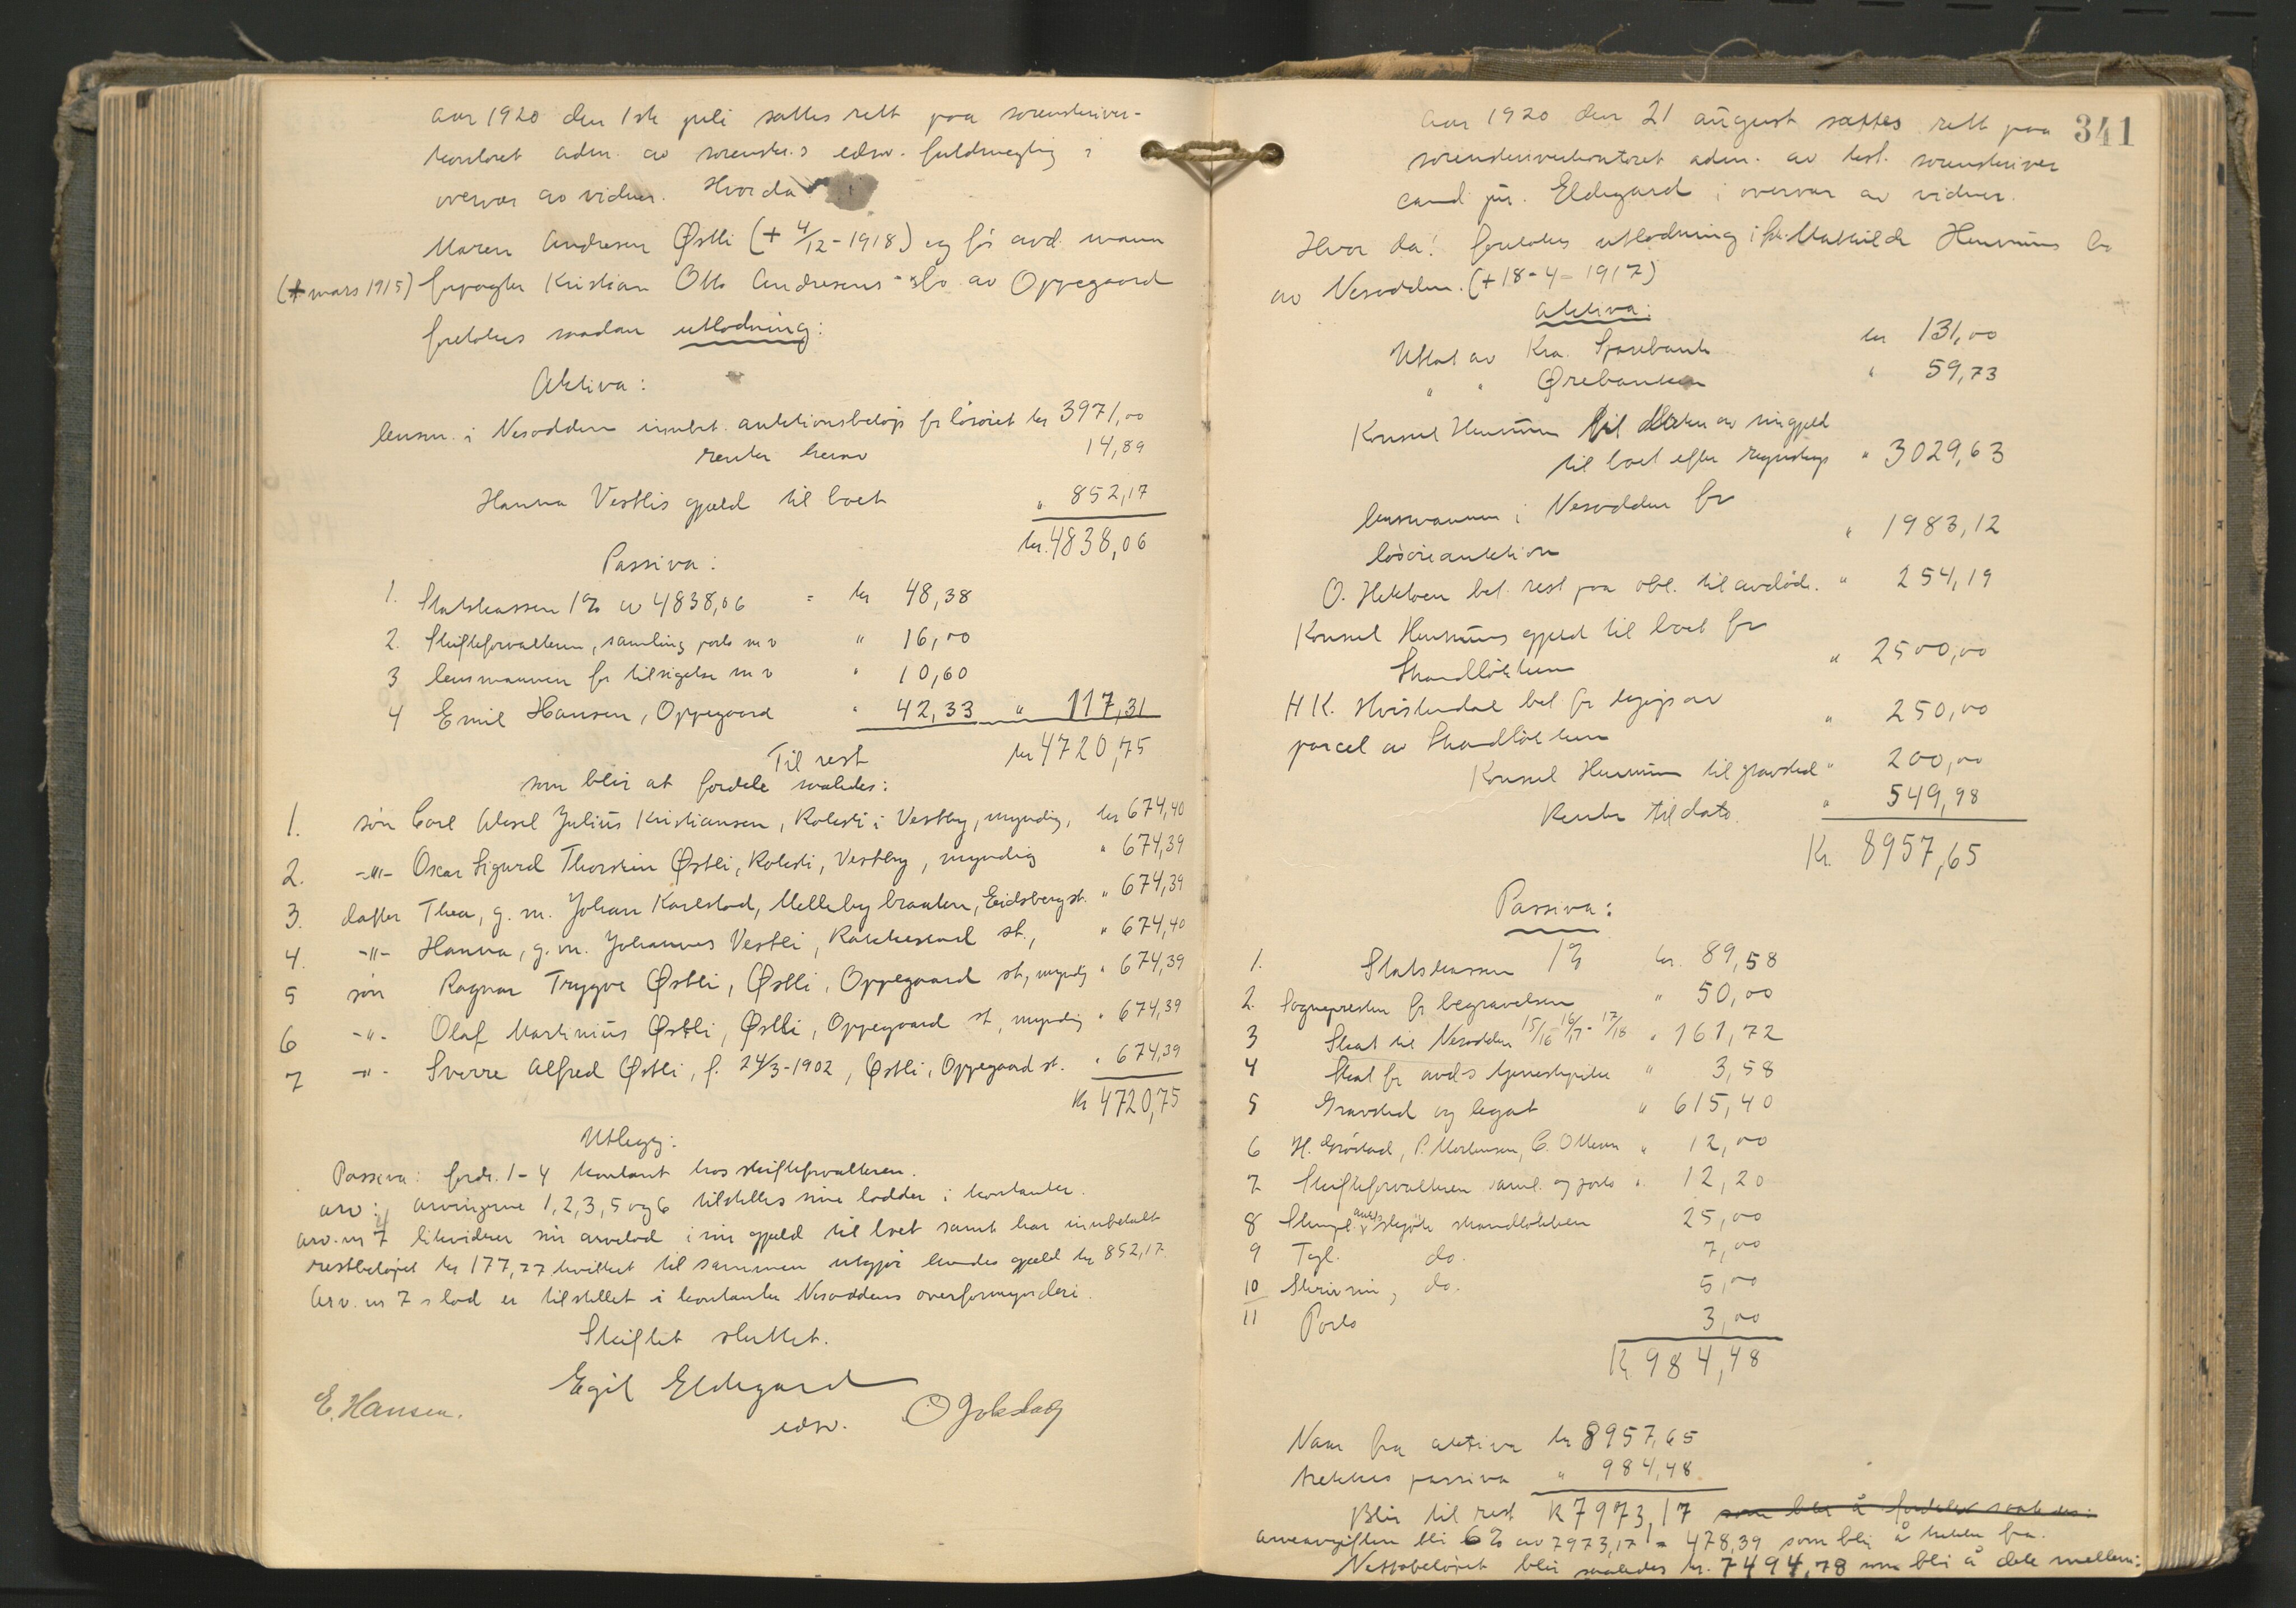 Aar 1920 den 1ste juli sattes rett paa sorenskriver-
kontoret adm. av sorenskr.s edsv. fuldmegtig i
overvær av vidner. Hvorda
Maren Andresen Østli (+ 4/12-1918) og før avd. mann
(+ mars 1915) forpagter Kristian Otto Andresens - sbo av Oppegaard
foretokes saadan utlodning:
Aktiva:
lensm. i Nesodden innbet. auktionsbeløp for løsøret kr 3971,00
renter herav 14,89
Hanna Vestlis gjæld til boet " 852,17
kr. 4838,06
Passiva:
1. Statskassen 1% av 4838,06 = kr 48,38
2. Skifteforvalteren, samling porto m v " 16,00
3 lensmannen for tilsigelse m v " 10,60
4 Emil Hansen, Oppegaard " 42,33 " 117,31
Til rest kr 4720,75
som blir at fordele saaledes:
1. søn Carl Aksel Julius Kristiansen, Rolesti i Vestby, myndig, kr 674,40
2. -"- Oscar Sigurd Thorstein Østli, Rolesti, Vestby, myndig " 674,39
3. datter Thea, g. m. Johan Karlstad, Mellebybraaten, Eidsberg st. " 674,39
4. -"- Hanna, g. m. Johannes Vestli, Rakkestad st., " 674,40
5 søn Ragnar Trygve Østli, Østli, Oppegaard st, myndig " 674,39
6 -"- Olaf Martinius Østli, Østli, Oppegaard st, myndig " 674,39
7 -"- Sverre Alfred Østli, f. 24/3-1902, Østli, Oppegaard st. " 674,39
Kr 4720,75
Utlegg:
Passiva: fordr. 1-4 kontant hos skifteforvalteren.
arv: arvingerne 1, 2, 3, 5 og 6 tilstilles sine lodder i kontanter.
arv. nr 4 likviderer sin arvelod i sin gjæld til boet samt har innbetalt
restbeløpet kr 177,77 hvilket til sammen utgjør hendes gjæld kr 852,17.
Arv. nr 7 s lod er tilstillet i kontanter Nesoddens overformynderi.
Skiftet sluttet.
Egil Eldegard
edsv.
E. Hansen.
341
Aar 1920 den 21 august sættes rett paa
sorenskriverkontoret adm. av kst. sorenskriver
cand jur. Eldegard i overvær av vidner.
Hvor da! foretokes utlodning i frk. Mathilde Hennums bo
av Nesodden. (+ 18-4-1917)
Aktiva:
Uttat av Kra. Sparebank kr 131,00
" " Ørebanken " 59,73
Konsul Hennum
til boet efter regnskap " 3029,63
lensmannen i Nesodden for
løsøreauktion " 1983,12
O. Hekloen bet. rest paa obl. til avdøde. " 254,19
Konsul Hennums gjæld til boet for
Strandløkken " 2500,00
H K. Hvistendal bet for
parcel av Strandløkken " 250,00
Konsul Hennum til gravsted " 200,00
Renter til dato. " 549,98
Kr. 8957,65
Passiva:
1. Statskassen 1% kr. 89,58
2. Sognepresten for begravelsen " 50,00
3 Skat til Nesodden 15/16 16/17 - 17/18 " 161,72
4 Skat for avd.s tjenestepike " 3,58
5 Gravsted og legat " 615,40
6 H. Grøstad, P. Mortensen, C. Ottesen " 12,00
7 Skifteforvalteren saml. og porto " 12,20
8 Stempl. aukts skjøte strandløkken 25,00
9 Tgl. do. 7,00
10 Skrivn, do. 5,00
11 Porto 3,00
Kr 984,48
Naar fra aktiva kr 8957,65
trekkes passiva " 984,48
Blir til rest kr 7973,17 som blir å fordeles saaledes:
arveavgiften bli 6% av 7973,17 = 478,39 som bli å trekke fra.
Nettobeløpet blir saaledes kr. 7494,78 som bli å dele mellem: